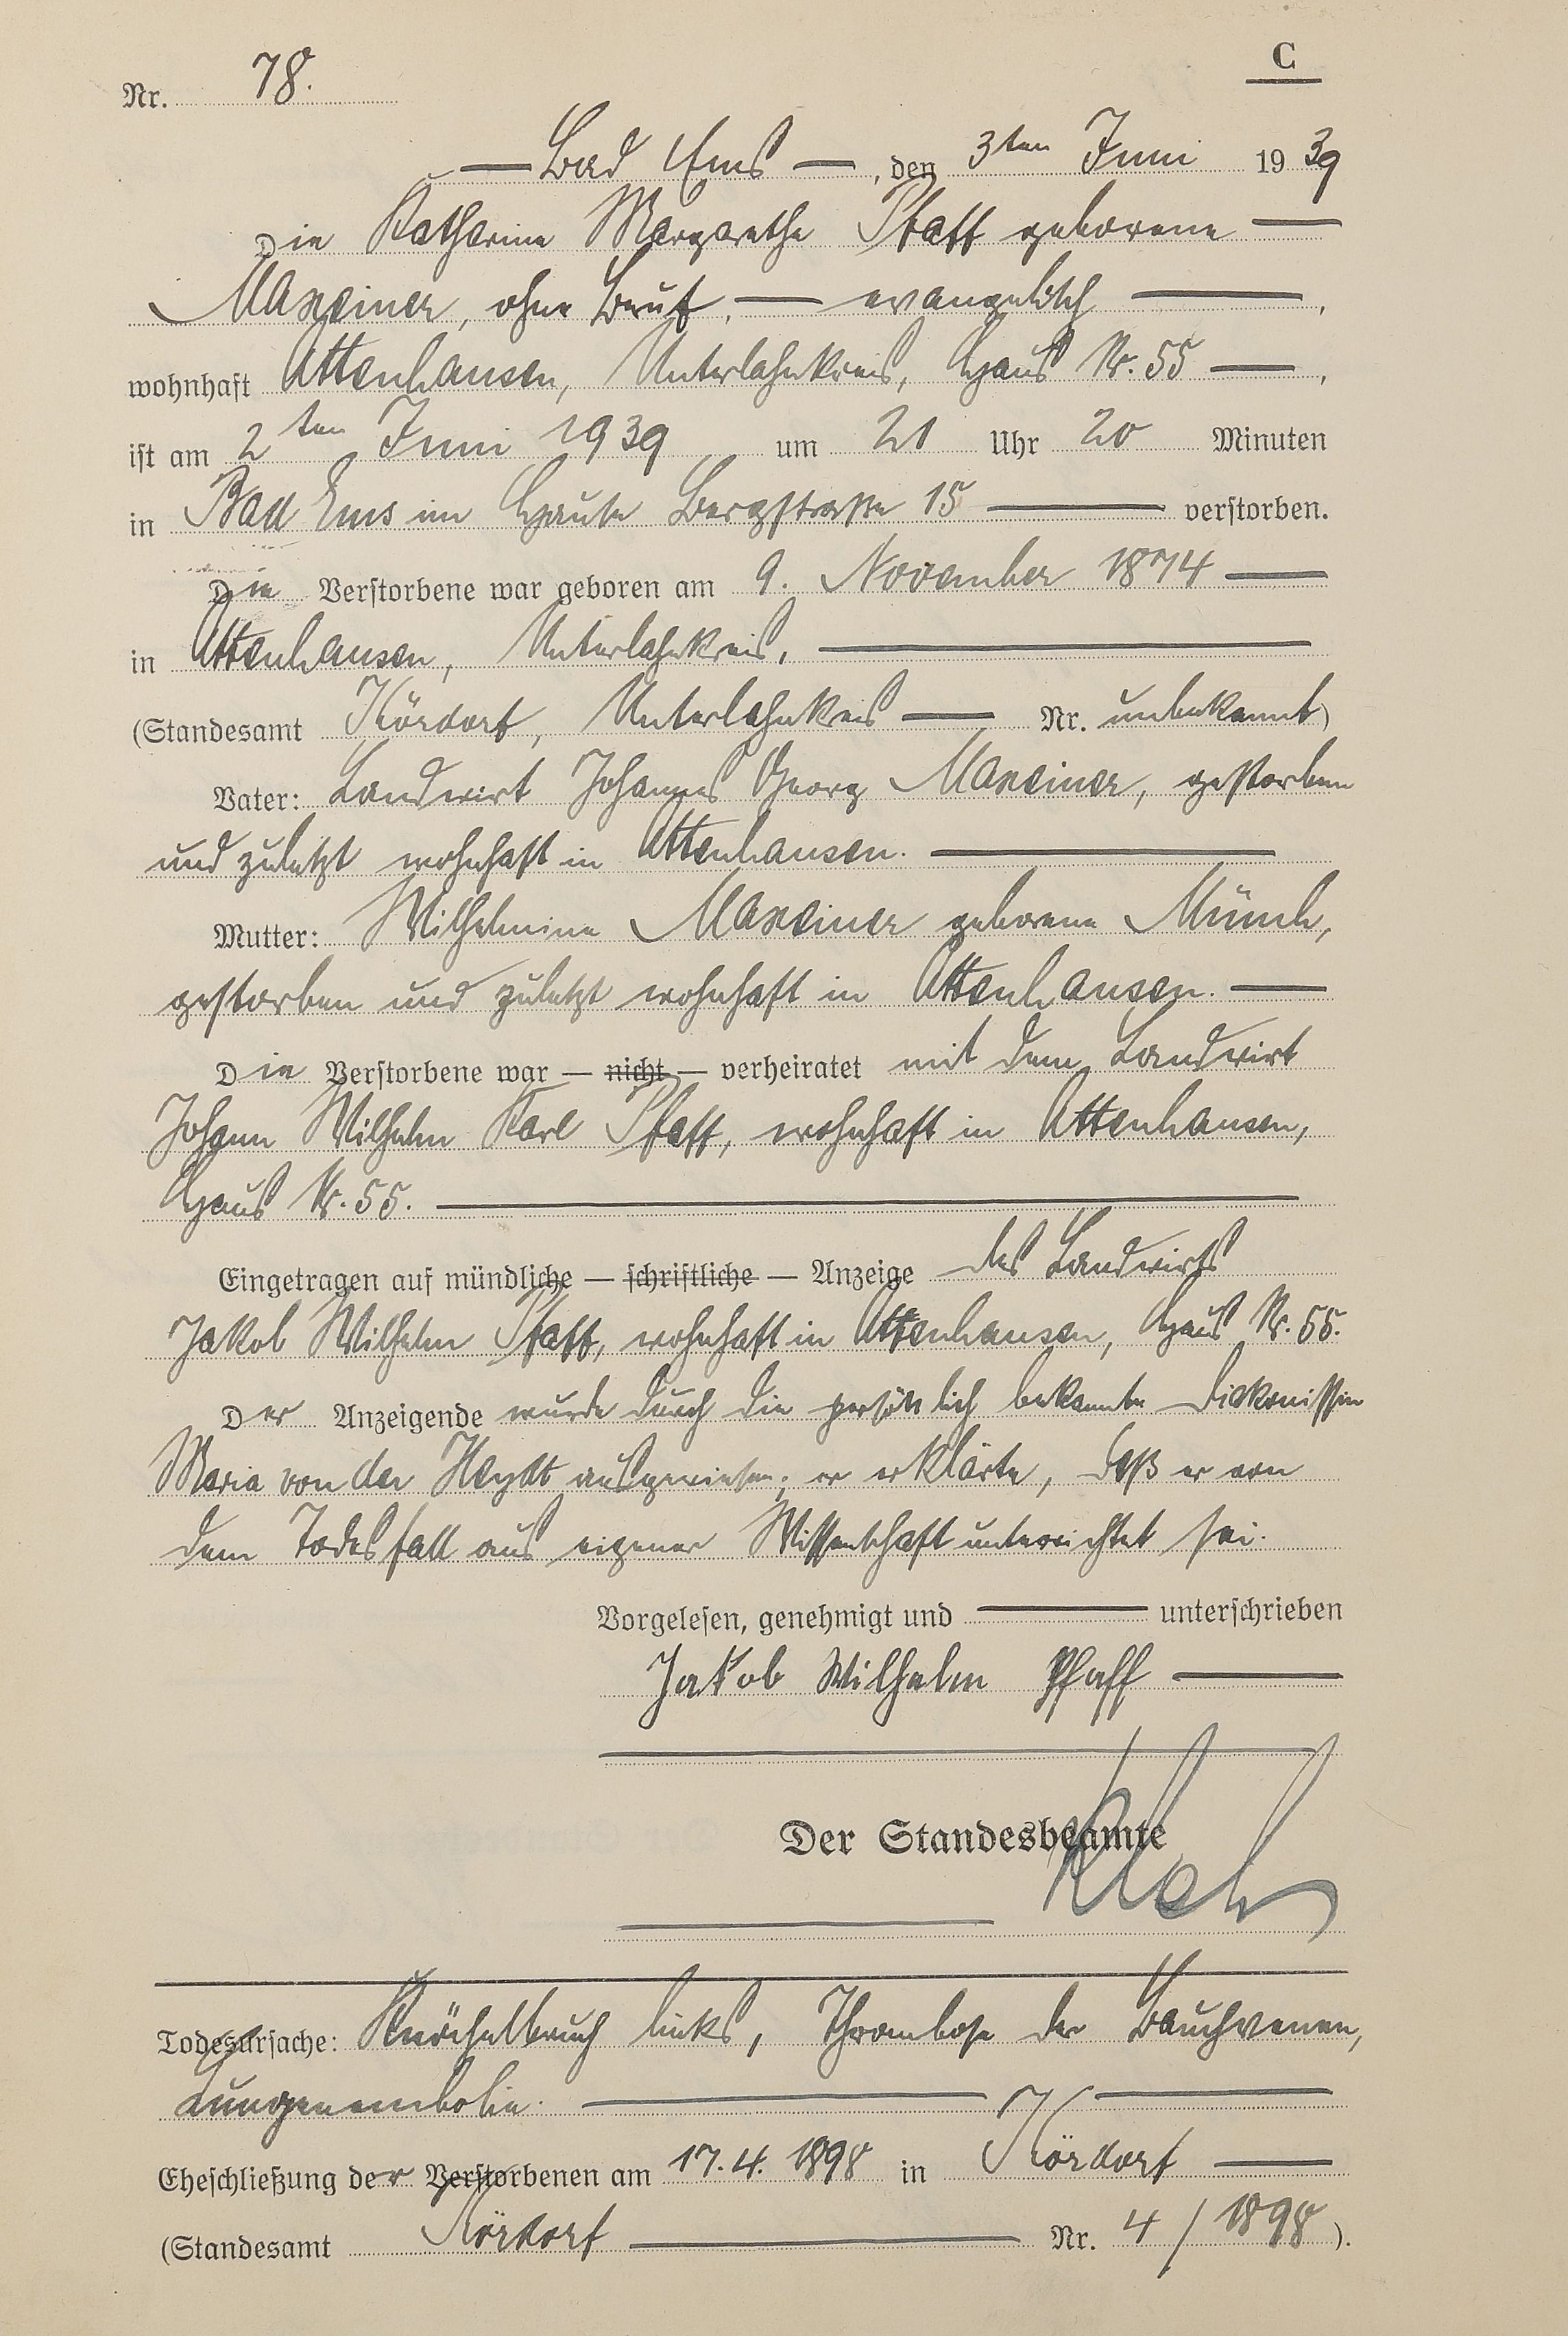 C
Nr. 78.
— Bad Ems —, den 3ten Juni 1939
Die Katharine Margarethe Pfaff geborene —
Maxeiner, ohne Beruf, — evangelisch —,
wohnhaft Attenhausen, Unterlahnkreis, Haus Nr. 55 —,
ist am 2ten Juni 1939 um 21 Uhr 20 Minuten
in Bad Ems im Hause Bergstraße 15 — verstorben.
Die Verstorbene war geboren am 9. November 1874 —
in Attenhausen, Unterlahnkreis, —
(Standesamt Kördorf, Unterlahnkreis — Nr. unbekannt)
Vater: Landwirt Johannes Georg Maxeiner, gestorben
und zuletzt wohnhaft in Attenhausen. —
Mutter: Wilhelmine Maxeiner geborene Münch,
gestorben und zuletzt wohnhaft in Attenhausen. —
Die Verstorbene war — nicht — verheiratet mit dem Landwirt
Johann Wilhelm Karl Pfaff, wohnhaft in Attenhausen,
Haus Nr. 55. —
Eingetragen auf mündliche — schriftliche — Anzeige des Landwirts
Jakob Wilhelm Pfaff, wohnhaft in Attenhausen, Haus Nr. 55.
Der Anzeigende wurde durch die persönlich bekannte Diakonissin
Maria von der Heydt ausgewiesen; er erklärte, daß er von
dem Todesfall aus eigener Wissenschaft unterrichtet sei.
Vorgelesen, genehmigt und — unterschrieben
Jakob Wilhelm Pfaff —
Der Standesbeamte
Todesursache: Knöchelbruch links, Thrombose der Bauchvenen,
Lungenembolie. —
Eheschließung der Verstorbenen am 17.4.1898 in Kördorf —
(Standesamt Kördorf — Nr. 4/1898).